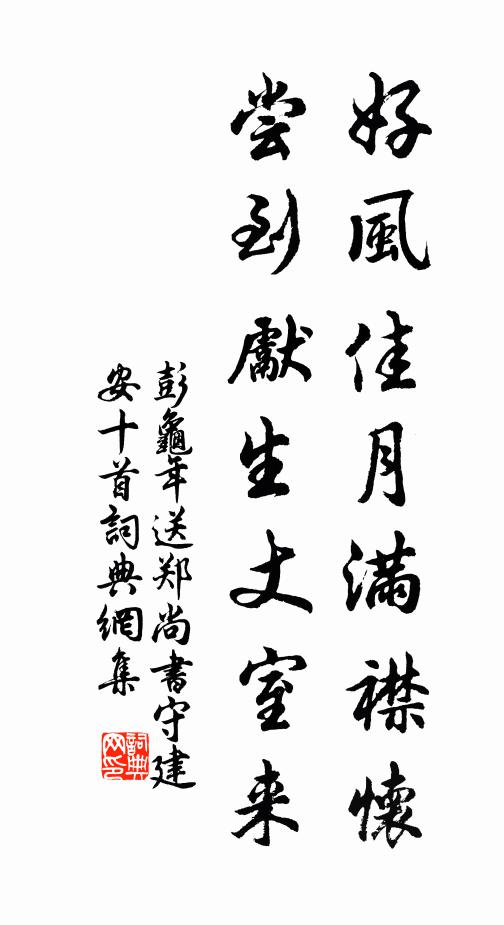 好風佳月滿襟懷
尝到獻生丈室来
彭龜年送郑尚書守建
安十首詞典網集
詞典
网印